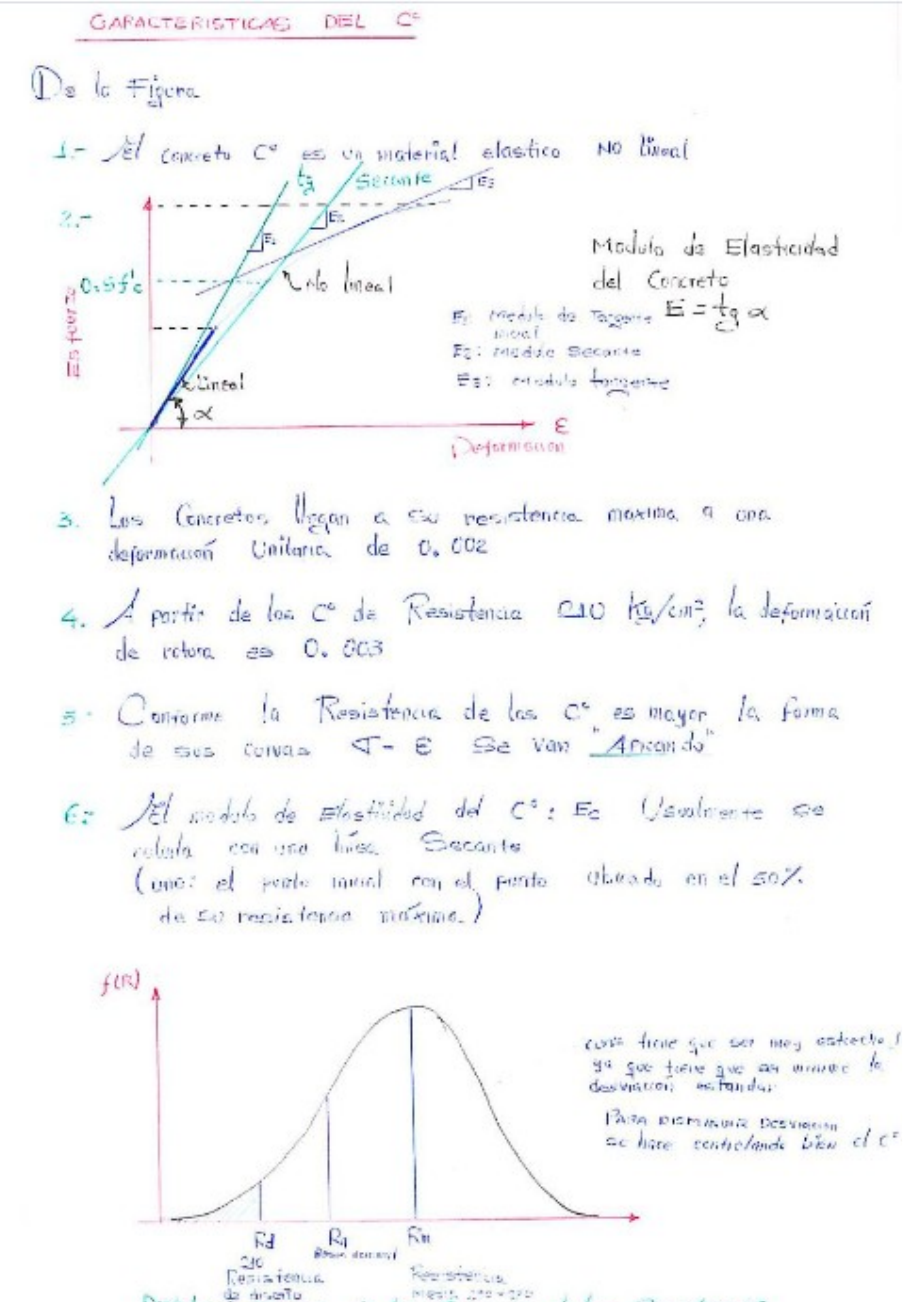 CARACTERISTICAS DEL Cº
De la Figura
1.- El concreto Cº es un material elastico NO lineal
2.-
tg
Secante
E1
E2
E3
0.5f'c
No lineal
Lineal
α
Esfuerzo
ε
Deformacion
Modulo de Elasticidad
del Concreto
E = tg α
E1: modulo de Tangente
inicial
E2: modulo Secante
E3: modulo tangente
3. Los Concretos llegan a su resistencia maxima a una
deformación Unitaria de 0.002
4. A partir de los Cº de Resistencia 210 Kg/cm², la deformación
de rotura es 0.003
5- Conforme la Resistencia de los Cº es mayor la forma
de sus curvas σ - ε Se van
6- El modulo de Elasticidad del Cº: Ec Usualmente se
calcula con una línea Secante
(une: el punto inicial con el punto ubicado en el 50%
de su resistencia máxima)
f(R)
tiene que ser muy estrecha
ya que tiene que ser minimo la
desviación estandar
PARA DISMINUIR DESVIACION
se hace controlando bien el Cº
Rd
210
Resistencia
de diseño
Rm
Resistencia